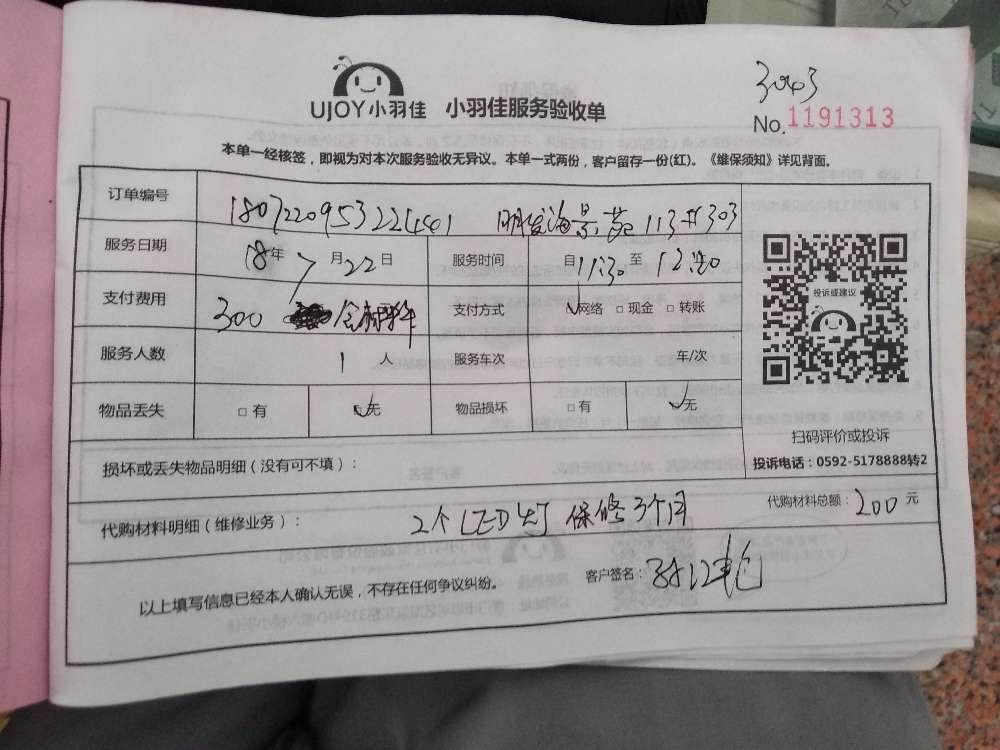 3003
UJOY小羽佳 小羽佳服务验收单
No.1191313
本单一经核签，即视为对本次服务验收无异议。本单一式两份，客户留存一份(红)。《维保须知》详见背面。
订单编号 明发海景苑 113#303
服务日期 18年7月22日 服务时间 自11:30至
支付费用 300 支付方式 ☑网络 □现金 □转账
服务人数 1人 服务车次 车/次
物品丢失 □有 ☑无 物品损坏 □有 ☑无
投诉或建议
扫码评价或投诉
投诉电话：0592-5178888转2
损坏或丢失物品明细（没有可不填）：
代购材料明细（维修业务）： 2个LED灯 保修3个月 代购材料总额：200元
以上填写信息已经本人确认无误，不存在任何争议纠纷。 客户签名：